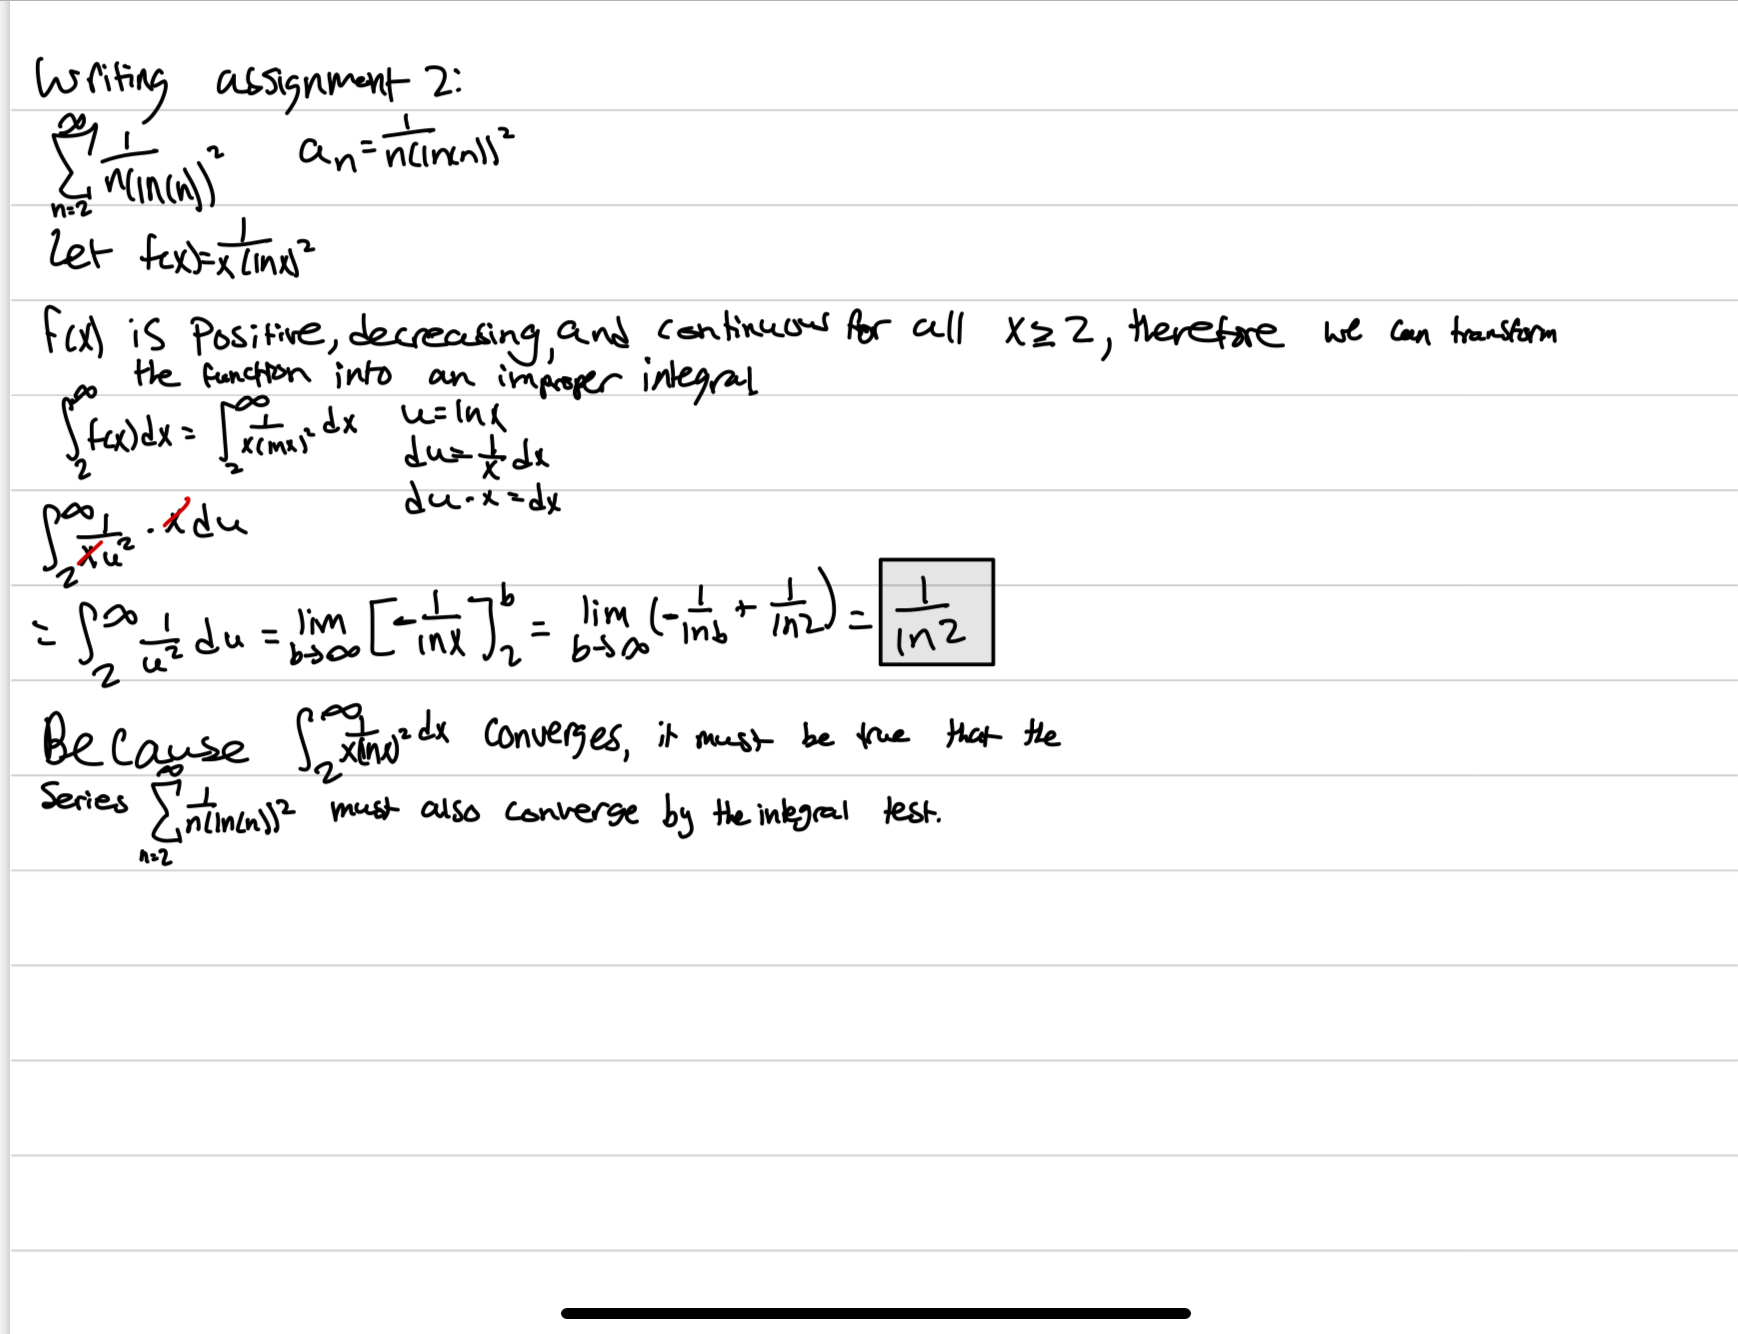 Writing assignment 2:
∞∑n=2 1/n(ln(n))² aₙ = 1/n(ln(n))²
Let f(x) = 1/x(lnx)²
f(x) is Positive, decreasing, and continuous for all x ≥ 2, therefore we can transform
the function into an improper integral
∫₂^∞ f(x)dx = ∫₂^∞ 1/x(lnx)² dx u = lnx
du = 1/x dx
du · x = dx
∫₂^∞ 1/xu² · x du
= ∫₂^∞ 1/u² du = lim b→∞ [-1/lnx]₂^b = lim b→∞ (-1/lnb + 1/ln2) = 1/ln2
Because ∫₂^∞ 1/x(lnx)² dx Converges, it must be true that the
Series ∞∑n=2 1/n(ln(n))² must also converge by the integral test.